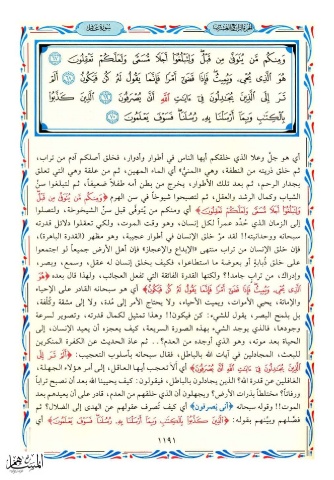 سورة غافر
وَمِنكُم مَّن يُتَوَفَّىٰ مِن قَبْلُ وَلِتَبْلُغُوا أَجَلًا مُّسَمًّى وَلَعَلَّكُمْ تَعْقِلُونَ ﴿٦٧﴾
هُوَ الَّذِي يُحْيِي وَيُمِيتُ فَإِذَا قَضَىٰ أَمْرًا فَإِنَّمَا يَقُولُ لَهُ كُن فَيَكُونُ ﴿٦٨﴾ أَلَمْ
تَرَ إِلَى الَّذِينَ يُجَادِلُونَ فِي آيَاتِ اللَّهِ أَنَّىٰ يُصْرَفُونَ ﴿٦٩﴾ الَّذِينَ كَذَّبُوا
بِالْكِتَابِ وَبِمَا أَرْسَلْنَا بِهِ رُسُلَنَا فَسَوْفَ يَعْلَمُونَ ﴿٧٠﴾
أي هو جلَّ وعلا الذي خلقكم أيها الناس في أطوار وأدوار، فخلق أصلكم آدم من تراب،
ثم خلق ذريته من النطفة، وهي المنيُّ أي الماء المهين، ثم من علقة وهي التي تعلق
بجدار الرحم، ثم بعد تلك الأطوار، يخرج من بطن أمه طفلاً ضعيفاً، ثم لتبلغوا سنَّ
الشباب وكمال الرشد والعقل، ثم لتصبحوا شيوخاً في سن الهرم ﴿وَمِنكُم مَّن يُتَوَفَّىٰ مِن قَبْلُ
وَلِتَبْلُغُوا أَجَلًا مُّسَمًّى وَلَعَلَّكُمْ تَعْقِلُونَ﴾ أي ومنكم من يُتوفَّى قبل سنِّ الشيخوخة، ولتصلوا
إلى الزمان الذي حُدِّد عمراً لكل إنسان، وهو وقت الموت، ولكي تعقلوا دلائل قدرته
سبحانه ووحدانيته! لقد مرَّ خلق الإنسان في أطوار عجيبة، وهو مظهر (القدرة الباهرة)
فإن خلق الإنسان من تراب منتهى «الإبداع والإعجاز» فإن أهل الأرض جميعاً لو اجتمعوا
على خلق ذُبابةٍ أو بعوضة ما استطاعوا، فكيف بخلق إنسان له عقل، وسمع، وبصر،
وإدراك، من ترابٍ جامد!؟ ولكنها القدرة الفائقة التي تفعل العجائب، ولهذا قال بعده ﴿هُوَ
الَّذِي يُحْيِي وَيُمِيتُ فَإِذَا قَضَىٰ أَمْرًا فَإِنَّمَا يَقُولُ لَهُ كُن فَيَكُونُ﴾ أي هو سبحانه القادر على الإحياء
والإماتة، يحيي الأموات، ويميت الأحياء، ولا يحتاج الأمر إلى مُدة، ولا إلى مشقة وكُلفة،
بل بلمح البصر، يقول للشيء: كن فيكون!! وهذا تمثيل لكمال قدرته، وتصوير لسرعة
وجودها، فالذي يوجد الشيء بهذه الصورة السريعة، كيف يعجزه أن يعيد الإنسان، إلى
الحياة بعد موته، وهو الذي أوجده من العدم؟.. ثم عاد الحديث عن الكفرة المنكرين
للبعث، المجادلين في آيات الله بالباطل، فقال سبحانه بأسلوب التعجيب: ﴿أَلَمْ تَرَ إِلَى
الَّذِينَ يُجَادِلُونَ فِي آيَاتِ اللَّهِ أَنَّىٰ يُصْرَفُونَ﴾ أي ألا تعجب أيها العاقل، إلى أمر هؤلاء الجهلة،
الغافلين عن قدرة الله؟ الذين يجادلون بالباطل، فيقولون: كيف يحيينا الله بعد أن نصبح تراباً
ورفاتاً؟ مختلطاً بذرات الأرض؟ ويجهلون أن الذي خلقهم من العدم، قادر على أن يعيدهم بعد
الموت!! وقوله سبحانه ﴿أَنَّى يُصرفون﴾ أي كيف تُصرف عقولهم عن الهدى إلى الضلال؟ ثم
فصَّلهم وبيَّنهم بقوله: ﴿الَّذِينَ كَذَّبُوا بِالْكِتَابِ وَبِمَا أَرْسَلْنَا بِهِ رُسُلَنَا فَسَوْفَ يَعْلَمُونَ﴾ أي
١١٩١